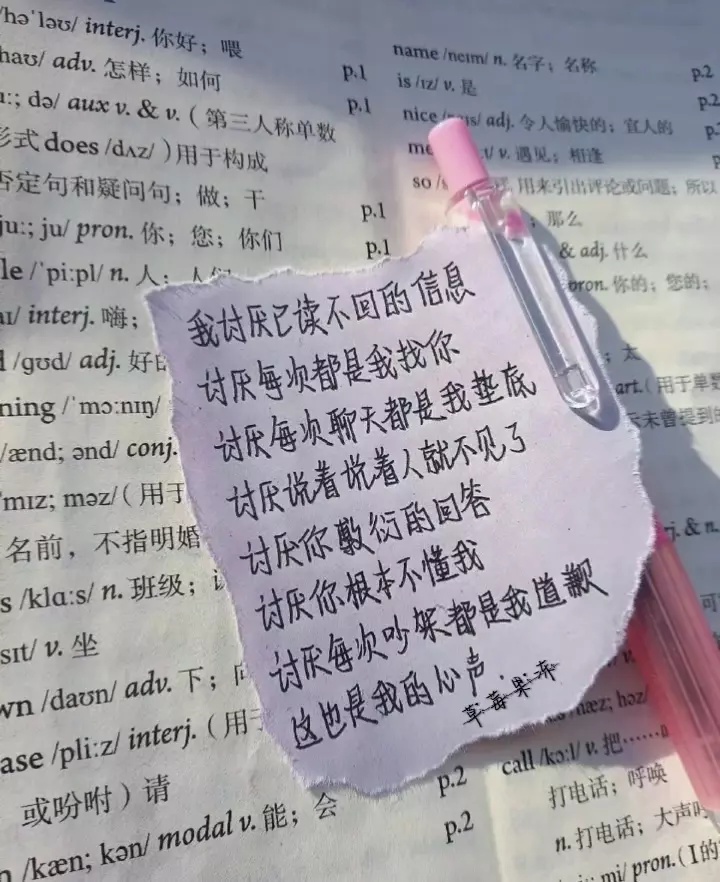 /həˈləʊ/ interj. 你好；喂
adv. 怎样；如何 p.1
də/ aux v. & v.（第三人称单数 p.1
形式 does /dʌz/）用于构成
否定句和疑问句；做；干
ju:; ju/ pron. 你；您；你们 p.1
/ˈpi:pl/ n. 人；人们 p.1
interj. 嗨；
/gʊd/ adj. 好的
/ˈmɔ:nɪŋ/
/ænd; ənd/ conj.
mɪz; məz/（用于
名前，不指明婚
/klɑ:s/ n. 班级；
sɪt/ v. 坐
/daʊn/ adv. 下；向
/pli:z/ interj.（用于
或吩咐）请 p.2
/kæn; kən/ modal v. 能；会 p.2
name /neɪm/ n. 名字；名称 p.2
is /ɪz/ v. 是 p.2
nice adj. 令人愉快的；宜人的
v. 遇见；相逢
so 用来引出评论或问题；所以
那么
& adj. 什么
pron. 你的；您的；
太
art.（用于单数
未曾提到的
我讨厌已读不回的信息
讨厌每次都是我找你
讨厌每次聊天都是我垫底
讨厌说着说着人就不见了
讨厌你敷衍的回答
讨厌你根本不懂我
讨厌每次吵架都是我道歉
这也是我的心声.
草莓果冻
& n.
hæz; həz/
call /kɔ:l/ v. 把……
打电话；呼唤
n. 打电话；大声
mi/ pron.（I的